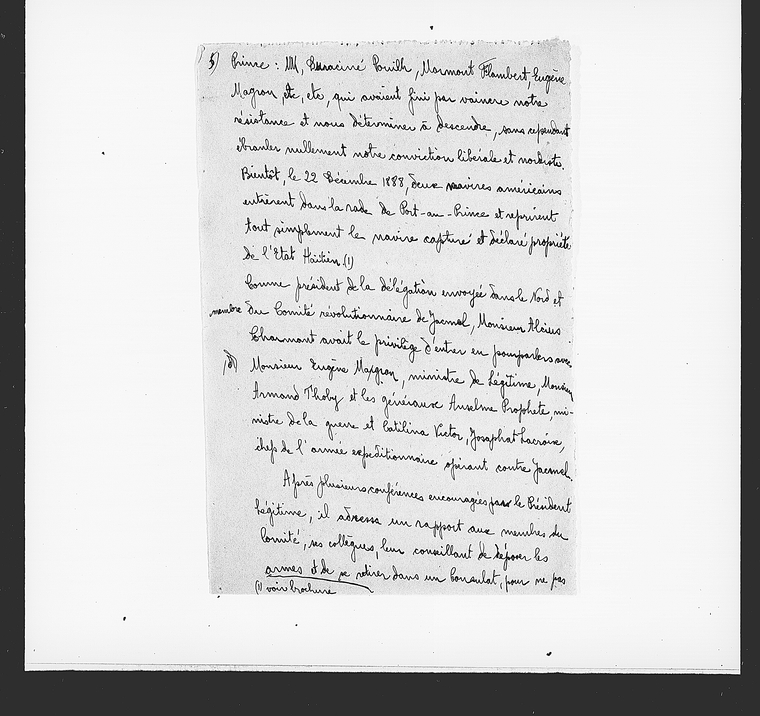 5) Prince : MM, Duraciné Pouilh, Marmont Flambert, Eugène
Magron, etc, etc, qui avaient fini par vaincre notre
résistance et nous déterminer à descendre, sans cependant
ébranler nullement notre conviction libérale et nordiste.
Bientôt, le 22 Décembre 1888, deux navires américains
entrèrent dans la rade de Port-au-Prince et reprirent
tout simplement le navire capturé et déclaré propriété
de l'Etat Haïtien (1)
Comme président de la délégation envoyée dans le Nord et
membre du Comité révolutionnaire de Jacmel, Monsieur Alcius
Charmant avait le privilège d'entrer en pourparlers avec
Monsieur Eugène Magron, ministre de Légitime, Monsieur
Armand Thoby et les généraux Anselme Prophète, mi-
nistre de la guerre et Catilina Victor, Josaphat Lacroix,
chefs de l'armée expéditionnaire opérant contre Jacmel.
Après plusieurs conférences encouragées par le Président
Légitime, il adressa un rapport aux membres du
Comité, ses collègues, leur conseillant de déposer les
armes et de se retirer dans un Consulat, pour ne pas
(1) voir brochure